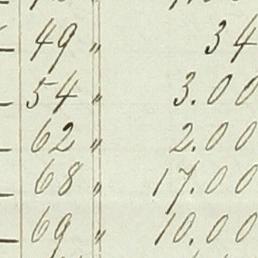 49 " 34
54 " 3.00
62 " 2.00
68 " 17.00
69 " 10.00